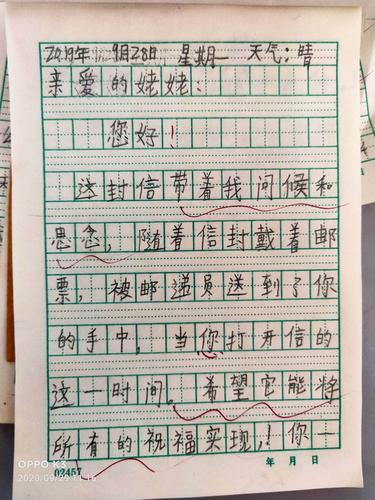 2019年 9月28日 星期一 天气:晴
亲爱的姥姥:
您好!
这封信带着我问候和
思念,随着信封戴着邮
票,被邮递员送到了你
的手中,当你打开信的
这一时间。希望它能将
所有的祝福实现,!你一
02457 年 月 日
OPPO K3
2020/09/29 11:16